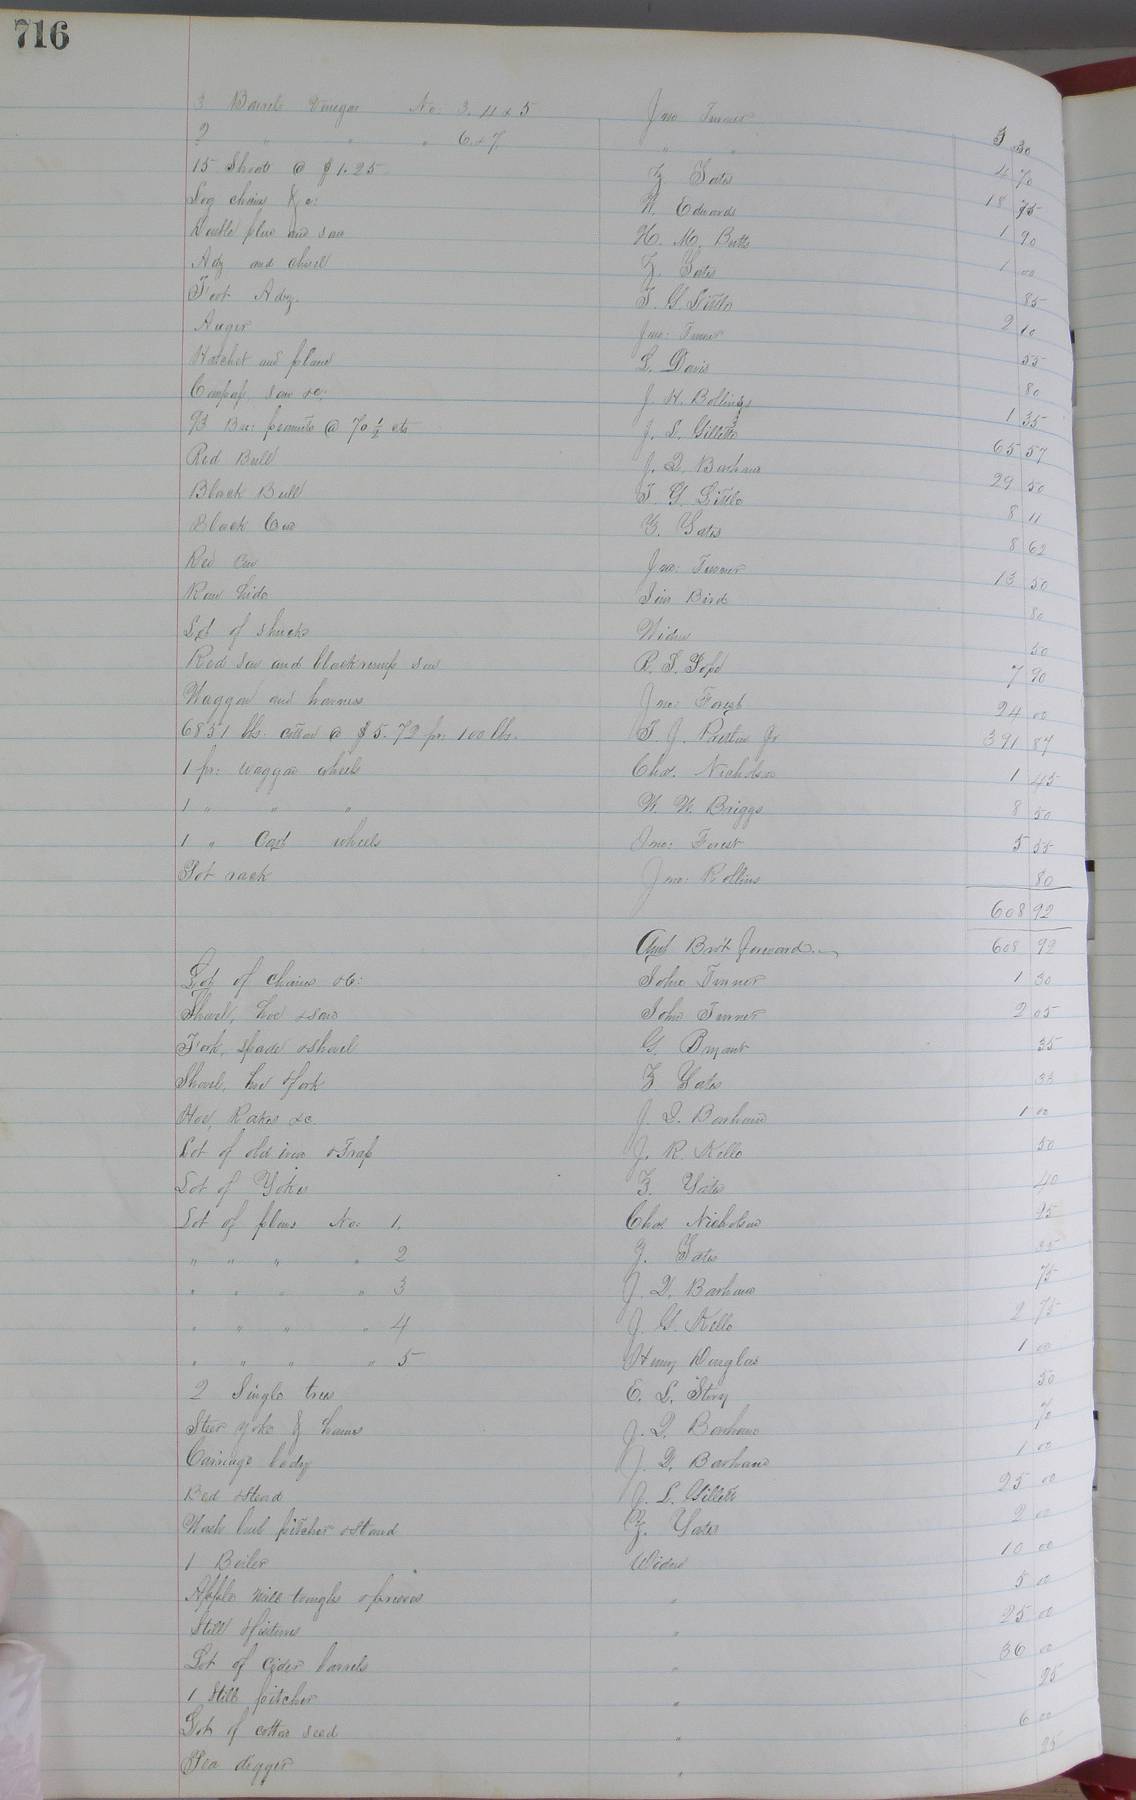 716
3 Barrels Vinegar No: 3, 4 & 5 Jno Turner 3 30
2 " " " 6 & 7 " " 4 70
15 Shoats @ $1.25 Z Yates 18 75
Log chains &c: W. Edwards 1 90
Double plow and saw H. M. Butts 1 00
Adz and chisel Z. Yates 85
Foot Adz. T. G. Little 2 10
Auger Jno: Turner 55
Hatchet and plane L. Davis 80
Compass saw &c: J. H. Bollings 1 35
93 Bu: peanuts @ 70 1/2 cts J. L. Gillette 65 57
Red Bull J. D. Barham 29 50
Black Bull T. G. Little 8 11
Black Cow Z. Yates 8 62
Red Cow Jno: Turner 13 50
Raw hide Jim Bird 80
Lot of shucks Widow 50
Red sow and black rump sow R. S. Pope 7 90
Waggon and harness Jno: Forest 24 00
6851 lbs: cotton @ $5.72 pr: 100 lbs. T. J. Pretlow Jr 391 87
1 pr: waggon wheels Chas. Nicholson 1 45
1 " " " W. W. Briggs 8 50
1 " Cart wheels Jno: Forest 5 55
Pot rack Jno: Rollins 80
608 92
Amt Bro't forward 608 92
Lot of chains &c: John Turner 1 30
Shovel, hoe & saw John Turner 2 05
Fork, spade & shovel G. Bryant 35
Shovel, hoe & fork Z Yates 33
Hoe, Rakes &c. J. D. Barham 1 00
Lot of old iron & Trap J. R. Kello 50
Lot of Yokes Z. Yates 40
Lot of plows No: 1. Chas Nicholson 25
" " " " 2 Z. Yates 35
" " " " 3 J. D. Barham 75
" " " " 4 J. G. Kello 2 75
" " " " 5 Henry Douglas 1 00
2 Single trees E. L. Story 50
Steer yoke & hames J. D. Barham 70
Carriage body J. D. Barham 1 00
Bed & Stead J. L. Gillette 25 00
Wash bowl pitcher & stand Z. Yates 2 00
1 Boiler Widow 10 00
Apple mill troughs & presses " 5 00
Still & fixtures " 25 00
Lot of cider barrels " 36 00
1 Still pitcher " 25
Lot of cotton seed " 6 00
Pea digger " 25